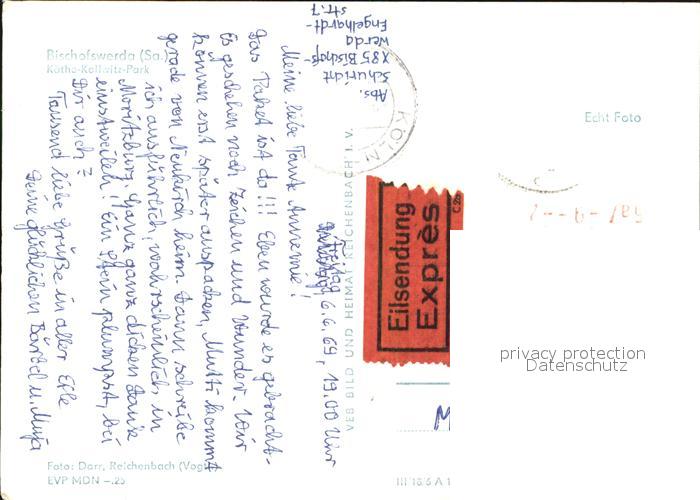 Bischofswerda (Sa.)
Käthe-Kollwitz-Park
Abs.
Schuricht
X 85 Bischofs-
werda
Engelhardt-
str. 7
Freitag, 6.6.69, 19.00 Uhr
Meine liebe Tante Annemie!
Das Paket ist da!!! Eben wurde es gebracht.
Es geschehen noch Zeichen und Wunder. Wir
können erst später auspacken, Mutti kommt
gerade von Neukirch heim. Dann schreibe
ich ausführlich, wahrscheinlich in
Moritzburg. Ganz, ganz dicken Dank
einstweilen! Ein Stein plumpst, bei
Dir auch?
Tausend liebe Grüße in aller Eile
Deine glücklichen Bärbel u. Muja
Foto: Darr, Reichenbach (Vogtl.)
EVP MDN -.25
VEB BILD UND HEIMAT REICHENBACH I. V.
KÖLN
Eilsendung
Exprès
C 2a
Echt Foto
M
III 18/6 A 1
privacy protection
Datenschutz